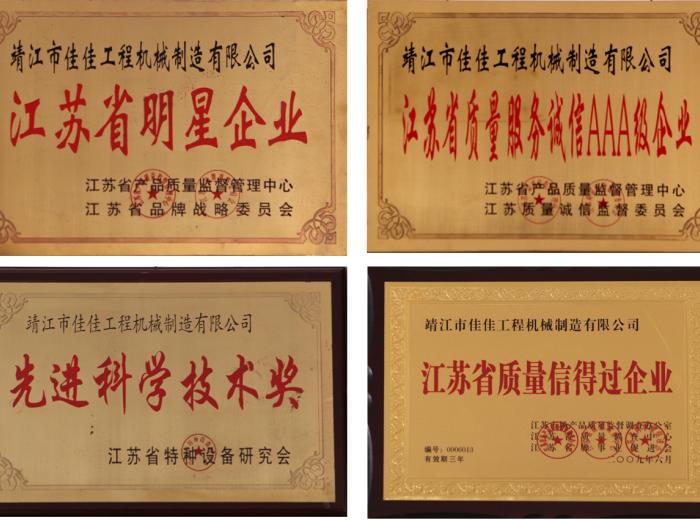 靖江市佳佳工程机械制造有限公司
江苏省明星企业
江苏省产品质量监督管理中心
江苏省品牌战略委员会
靖江市佳佳工程机械制造有限公司
江苏省质量服务诚信AAA级企业
江苏省产品质量监督管理中心
江苏质量诚信监督委员会
靖江市佳佳工程机械制造有限公司
先进科学技术奖
江苏省特种设备研究会
靖江市佳佳工程机械制造有限公司
江苏省质量信得过企业
编号:0006013
有效期三年
二〇〇九年六月